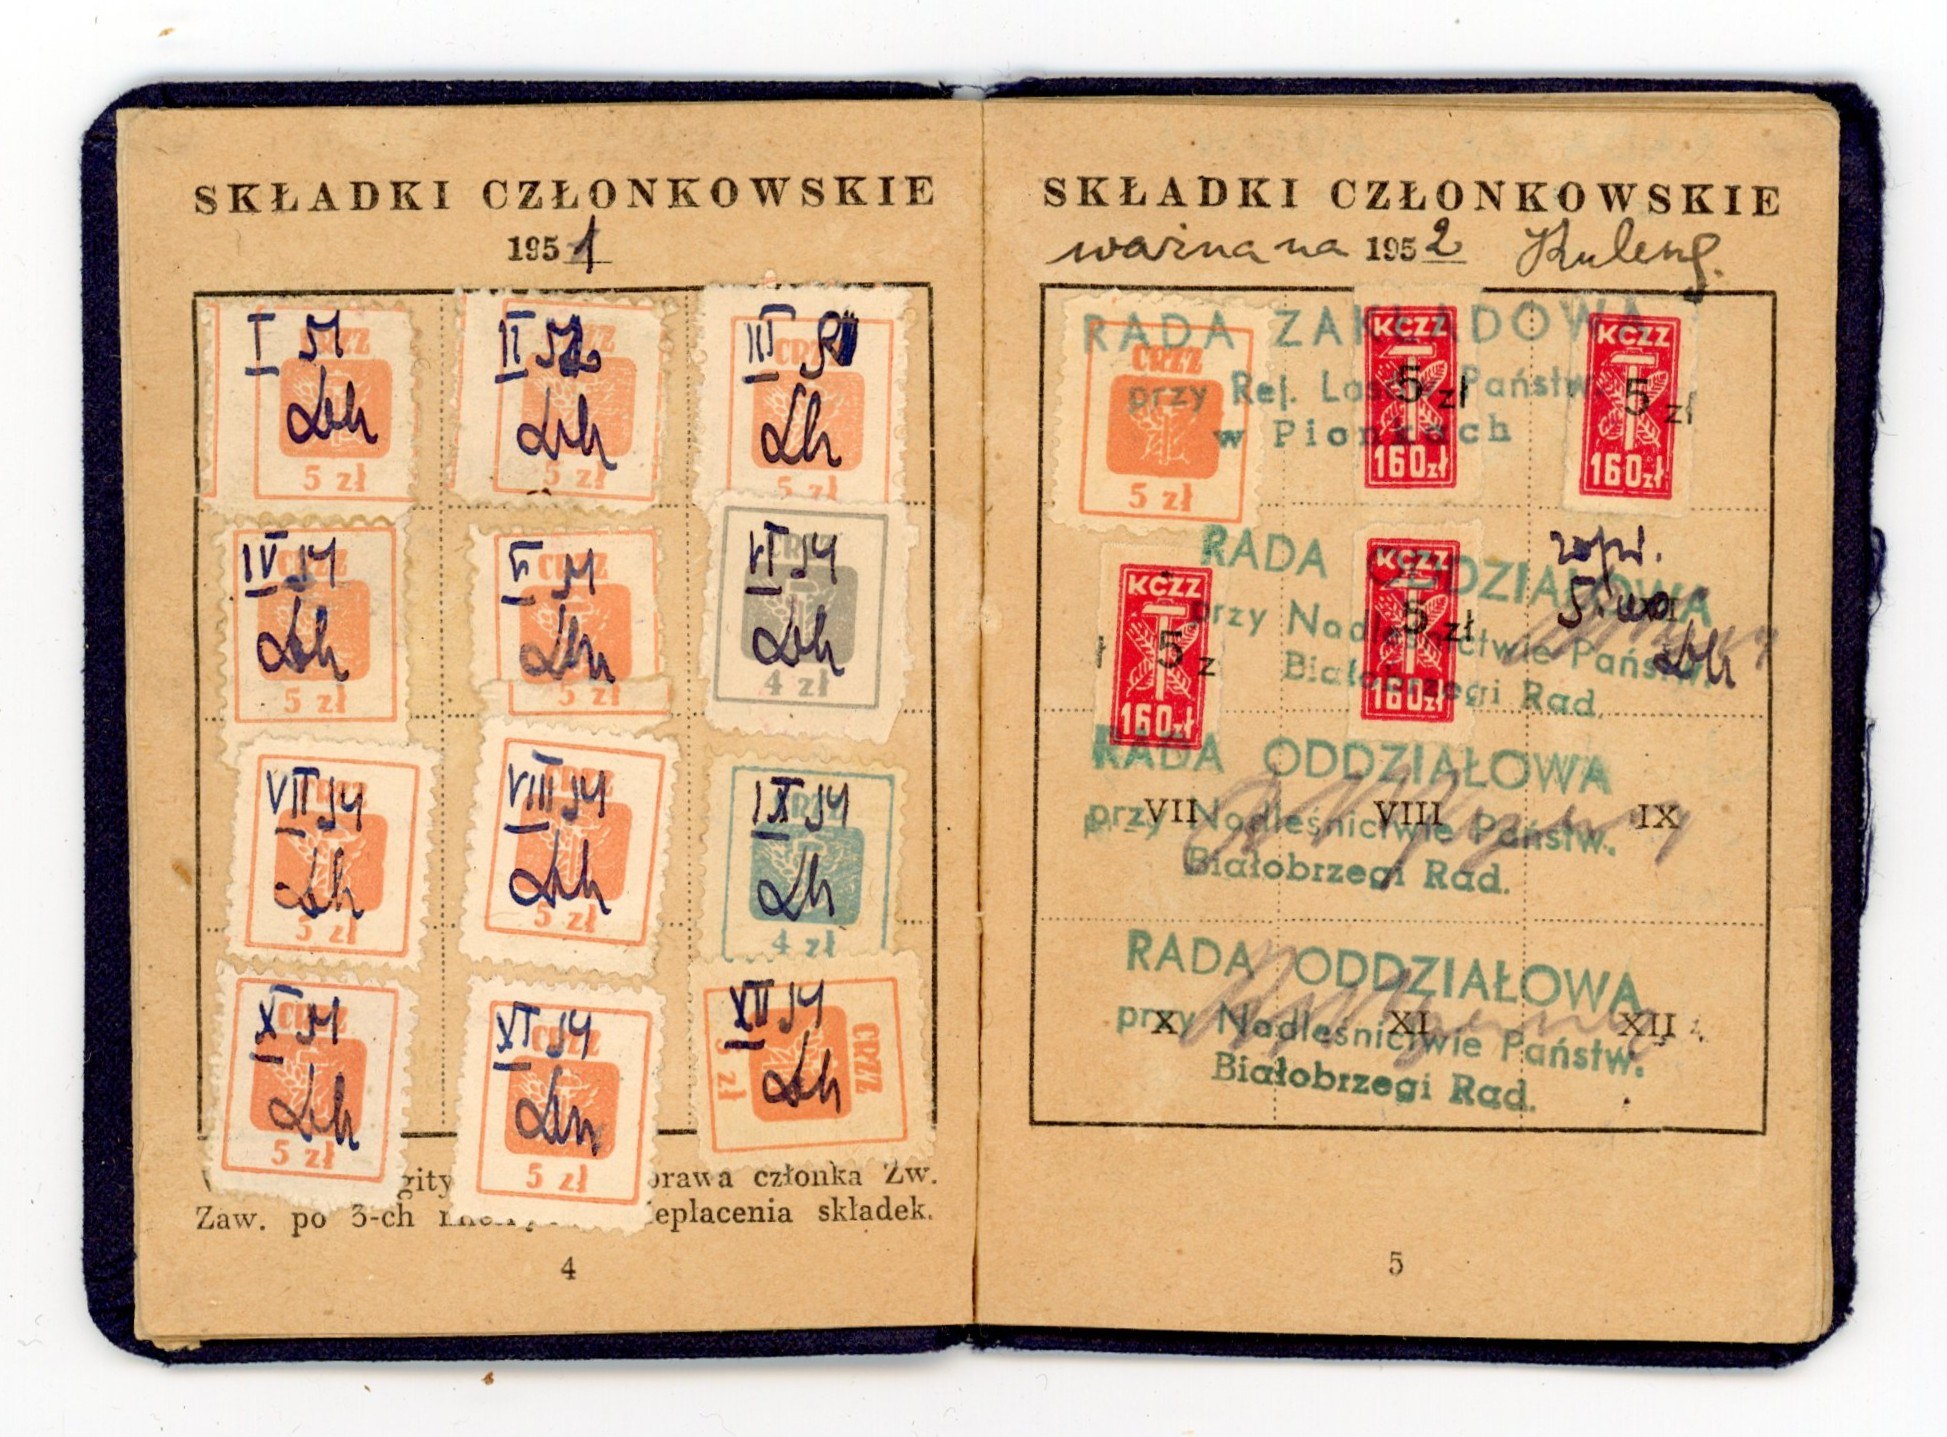 SKŁADKI CZŁONKOWSKIE
1951
I 51
CRZZ
5 zł
II 52
CRZZ
5 zł
III 51
CRZZ
5 zł
IV 51
CRZZ
5 zł
V 51
CRZZ
5 zł
VI 51
CRZZ
4 zł
VII 51
CRZZ
5 zł
VIII 51
CRZZ
5 zł
IX 51
CRZZ
4 zł
X 51
CRZZ
5 zł
XI 51
CRZZ
5 zł
XII 51
CRZZ
5 zł
prawa członka Zw.
Zaw. po 3-ch składek.
4
SKŁADKI CZŁONKOWSKIE
ważna na 1952
RADA ZAKŁADOWA
przy Rej. Lasów Państw.
w Pionkach
CRZZ
5 zł
KCZZ
5 zł
160 zł
KCZZ
5 zł
160 zł
RADA ODDZIAŁOWA
przy Nadleśnictwie Państw.
Białobrzegi Rad.
KCZZ
5 z
160 zł
KCZZ
5 zł
160 zł
RADA ODDZIAŁOWA
przy Nadleśnictwie Państw.
Białobrzegi Rad.
VII VIII IX
RADA ODDZIAŁOWA
przy Nadleśnictwie Państw.
Białobrzegi Rad.
X XI XII
5